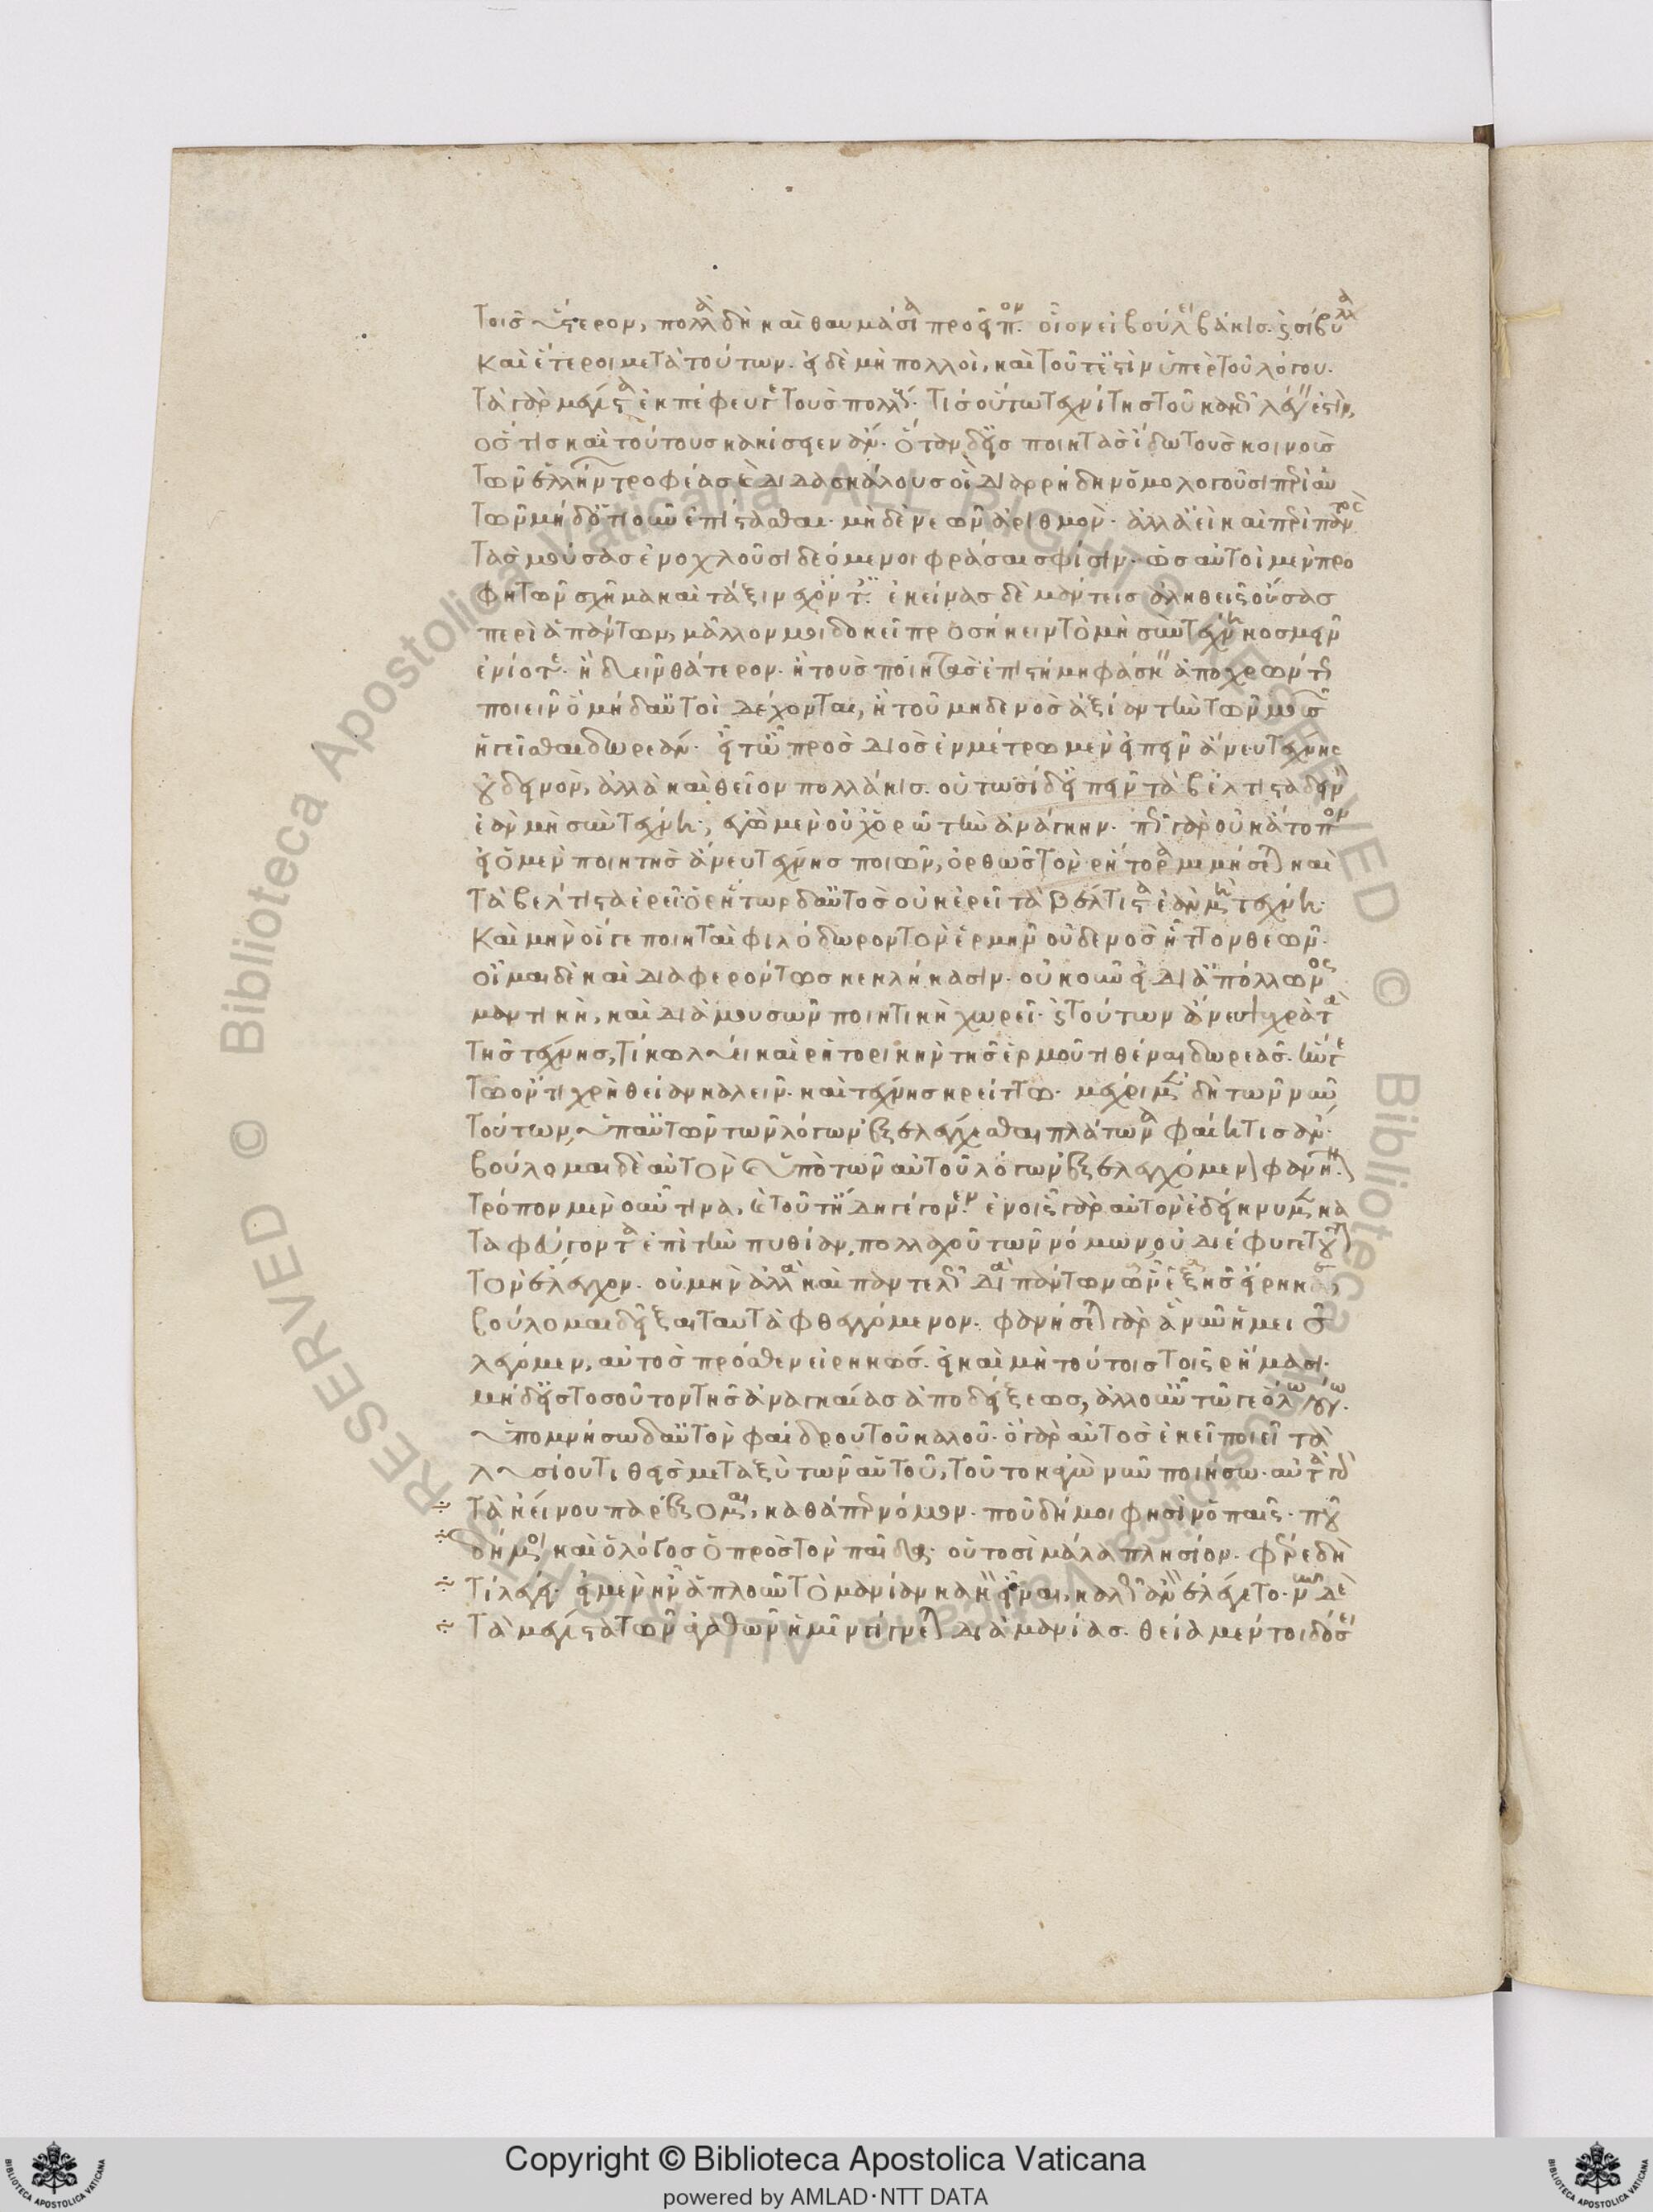 τοῖς ὕστερον, πολλὰ δὴ καὶ θαυμάσια προεῖπον. οἷον εἰ βούλει βάκις. ἡ σίβυλλα
καὶ ἕτεροι μετὰ τούτων. εἰ δὲ μὴ πολλοὶ, καὶ τοῦτ' ἔστιν ὑπὲρ τοῦ λόγου.
τὰ γὰρ μέγιστα ἐκπέφευγε τοὺς πολλούς. τίς οὕτω τεχνίτης τοῦ κακῶς λέγειν ἐστὶν,
ὅστις καὶ τούτους κακίζειν ἂν. ὅταν δ' εἰς ποιητὰς ἴδω τοὺς κοινοὺς
τῶν ἑλλήνων τροφέας καὶ διδασκάλους οἳ διαρρήδην ὁμολογοῦσι περὶ ὧν
τῶν μηδ' ὁτιοῦν ἐπίστασθαι. μηδὲ νεῶν ἀριθμὸν. ἀλλ' ἀεὶ καὶ περὶ παντὸς
τὰς μούσας ἐνοχλοῦσι δεόμενοι φράσαι σφίσιν. ὡς αὐτοὶ μὲν προ
φητῶν σχῆμα καὶ τάξιν ἔχοντες. ἐκείνας δὲ μάντεις ἀληθεῖς οὔσας
περὶ ἁπάντων, μᾶλλόν μοι δοκεῖ προσήκειν τὸ μὴ σὺν τέχνῃ κοσμεῖν
ἐνίοτε. ἢ δυεῖν θάτερον. ἢ τοὺς ποιητὰς ἐπιστήμῃ φάσκειν ἀποχρῶντας
ποιεῖν ὃ μήδ' αὐτοὶ δέχονται, ἢ τοῦ μηδενὸς ἀξίαν τὴν τῶν μουσῶν
ἡγεῖσθαι δωρεάν. εἶτ' ὦ πρὸς διὸς ἐν μέτρῳ μὲν εἰπεῖν ἄνευ τέχνης
οὐ δεινὸν, ἀλλὰ καὶ θεῖον πολλάκις. οὑτωσὶ δ' εἰπεῖν τὰ βέλτιστα δεινὸν
ἐὰν μὴ σὺν τέχνῃ, ἐγὼ μὲν οὐχ ὁρῶ τὴν ἀνάγκην. πῶς γὰρ οὐκ ἄτοπον
εἰ ὁ μὲν ποιητὴς ἄνευ τέχνης ποιῶν, ὀρθῶς τὸν ῥήτορα μιμήσεται καὶ
τὰ βέλτιστα ἐρεῖ· ὁ ῥήτωρ δ' αὐτὸς οὐκ ἐρεῖ τὰ βέλτιστα ἐὰν μὴ τέχνῃ.
καὶ μὴν οἵ γε ποιηταὶ φιλόδωρον τὸν ἑρμῆν οὐδενὸς ἧττον θεῶν.
οἶμαι δὲ καὶ διαφερόντως κεκλήκασιν. οὐκοῦν εἰ δι' ἀπόλλωνος
μαντικὴ, καὶ διὰ μουσῶν ποιητικὴ χωρεῖ. ἡ τούτων ἄνευ χρῆται
τῆς τέχνης, τί κωλύει καὶ ῥητορικὴν τῆς ἑρμοῦ τιθέναι δωρεᾶς. ἥν γε
τῷ ὄντι χρὴ θείαν καλεῖν. καὶ τέχνης κρείττω. μέχρι μὲν δὴ τῶν νῦν
τούτων, ὑπ' αὐτῶν τῶν λόγων ἐξελέγχεσθαι πλάτωνα φαίη τις ἂν.
βούλομαι δὲ αὐτὸν ὑπὸ τῶν αὑτοῦ λόγων ἐξελεγχόμενον φανῆναι.
τρόπον μὲν οὖν τινα, καὶ τοῦτ' ἤδη γέγονεν. ἐν οἷς γὰρ αὐτὸν ἐδείκνυμεν κα
ταφεύγοντα ἐπὶ τὴν πυθίαν, πολλαχοῦ τῶν νόμων, οὐ διέφυγε τουτονὶ
τὸν ἔλεγχον. οὐ μὴν ἀλλὰ καὶ παντελῶς διὰ πάντων ὧν ἑξῆς εἴρηκας,
βούλομαι δεῖξαι ταυτὰ φθεγγόμενον. φανήσεται γὰρ ἃ νῦν ἡμεῖς
λέγομεν, αὐτὸς πρόσθεν εἰρηκώς. εἰ καὶ μὴ τούτοις τοῖς ῥήμασι.
μήδ' εἰς τοσοῦτον τῆς ἀναγκαίας ἀποδείξεως, ἀλλ' οὖν τῷ γε ὅλῳ λόγῳ.
ὑπομνήσω δ' αὐτὸν φαίδρου τοῦ καλοῦ. ὃ γὰρ αὐτὸς ἐκεῖ ποιεῖ τὰ
λυσίου τιθεὶς μεταξὺ τῶν αὑτοῦ, τοῦτο κἀγὼ νῦν ποιήσω. αὐτὰ γὰρ
τἀκείνου παρέξομαι, καθάπερ νόμον. ποῦ δή μοι φησὶν ὁ παῖς. ποῦ
δή μοι καὶ ὁ λόγος ὁ πρὸς τὸν παῖδα. οὑτοσὶ μάλα πλησίον. φέρε δὴ
τί λέγει. εἰ μὲν ἦν ἁπλοῦν τὸ μανίαν κακὸν εἶναι, καλῶς ἂν ἐλέγετο. νῦν δὲ
τὰ μέγιστα τῶν ἀγαθῶν ἡμῖν γίγνεται διὰ μανίας. θείᾳ μέντοι δόσει